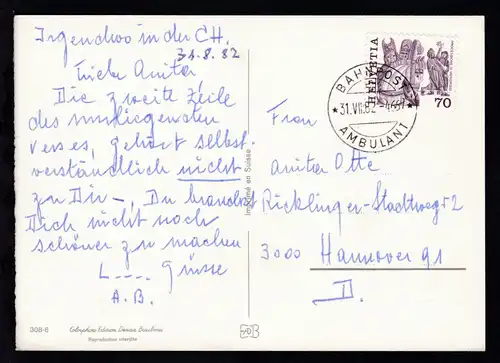 Irgendwo in der CH.
31.8.82
Liebe Anita,
Die zweite Zeile
des umliegenden
Verses, gehört selbst-
verständlich nicht
zu Dir –, Du brauchst
Dich nicht noch
schöner zu machen
L---- Grüsse
A.B.
308-6
Reproduction interdite
Imprimé en Suisse
HELVETIA
70
BAHNPOST
31.VIII.82
AMBULANT
Frau
Anita Otte
Ricklinger-Stadtweg 2
3000 Hannover 91
D.